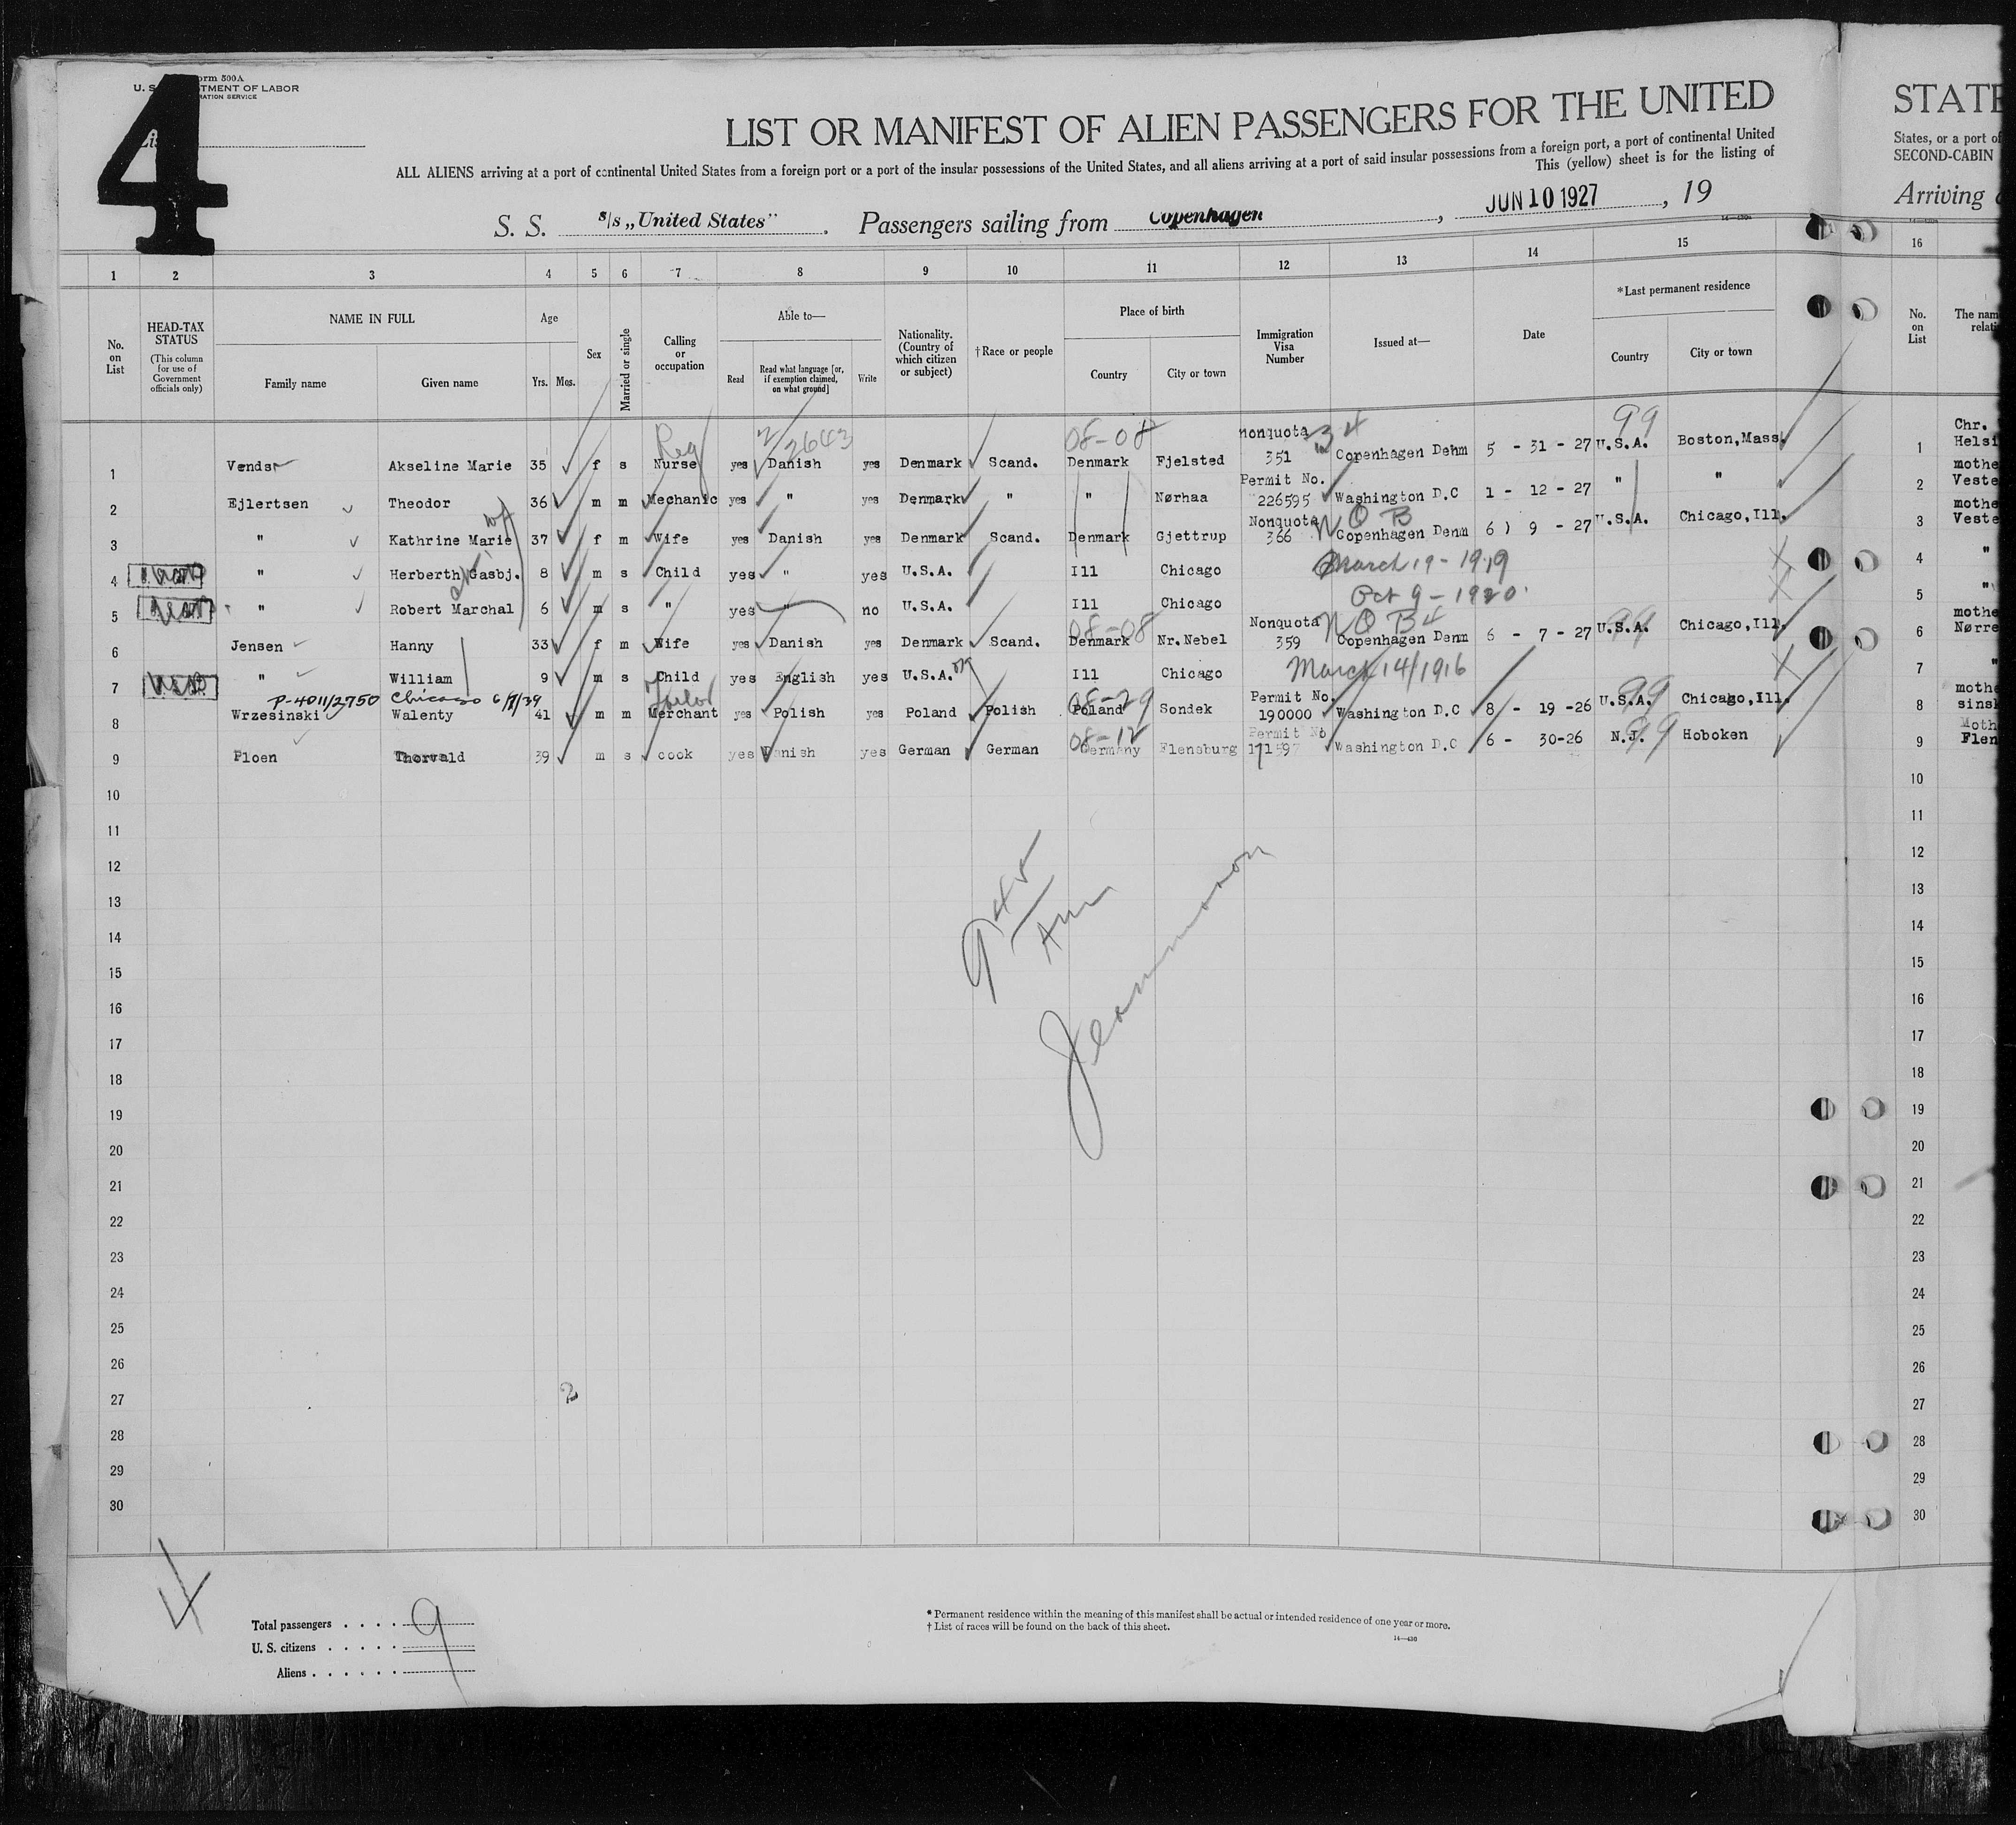 4
Form 500A
U. S. DEPARTMENT OF LABOR
LIST OR MANIFEST OF ALIEN PASSENGERS FOR THE UNITED
STATE
ALL ALIENS arriving at a port of continental United States from a foreign port or a port of the insular possessions of the United States, and all aliens arriving at a port of said insular possessions from a foreign port, a port of continental United
States, or a port of
This (yellow) sheet is for the listing of
SECOND-CABIN
S. S. s/s „United States" . Passengers sailing from Copenhagen , JUN 10 1927 , 19
Arriving
1 2 3 4 5 6 7 8 9 10 11 12 13 14 15 16
No. on List
HEAD-TAX STATUS
(This column for use of Government officials only)
NAME IN FULL
Family name
Given name
Age
Yrs. Mos.
Sex
Married or single
Calling or occupation
Able to—
Read
Read what language [or, if exemption claimed, on what ground]
Write
Nationality. (Country of which citizen or subject)
† Race or people
Place of birth
Country
City or town
Immigration Visa Number
Issued at—
Date
*Last permanent residence
Country
City or town
No. on List
The nam
relati
Reg 2/2643 08-08 nonquota 34 99
1 Vends Akseline Marie 35 f s Nurse yes Danish yes Denmark Scand. Denmark Fjelsted 351 Copenhagen Denm 5 - 31 - 27 U.S.A. Boston, Mass. 1 Chr. Helsi
Permit No.
2 Ejlertsen Theodor 36 m m Mechanic yes " yes Denmark " " Nørhaa 226595 Washington D.C 1 - 12 - 27 " " 2 mothe Veste
Nonquota N Q B
3 " Kathrine Marie wf 37 f m Wife yes Danish yes Denmark Scand. Denmark Gjettrup 366 Copenhagen Denm 6 ) 9 - 27 U.S.A. Chicago, Ill. 3 mothe Veste
4 " Herberth Gasbj. 8 m s Child yes " yes U.S.A. Ill Chicago March 19 - 1919 4 "
5 " Robert Marchal 6 m s " yes " no U.S.A. Ill Chicago Oct 9 - 1920 5 "
08-08 Nonquota N Q B 4
6 Jensen Hanny 33 f m Wife yes Danish yes Denmark Scand. Denmark Nr. Nebel 359 Copenhagen Denm 6 - 7 - 27 U.S.A. 99 Chicago, Ill. 6 mothe Nørre
7 " William 9 m s Child yes English yes U.S.A. Ill Chicago March 14/1916 7 "
P-4011/2750 Chicago 6/7/39 08-29 Permit No. 99
8 Wrzesinski Walenty 41 m m Merchant yes Polish yes Poland Polish Poland Sondek 190000 Washington D.C 8 - 19 -26 U.S.A. Chicago, Ill. 8 mothe sinsk
08-12 Permit No 99
9 Ploen Thorvald 39 m s cook yes Danish yes German German Germany Flensburg 171597 Washington D.C 6 - 30-26 N.J. Hoboken 9 Moth Flen
10 10
11 11
12 12
13 13
14 14
15 15
16 16
17 17
18 18
19 19
20 20
21 21
22 22
23 23
24 24
25 25
26 26
27 2 27
28 28
29 29
30 30
Total passengers . . . . 9
U. S. citizens . . . . .
Aliens . . . . . .
* Permanent residence within the meaning of this manifest shall be actual or intended residence of one year or more.
† List of races will be found on the back of this sheet.
14—430